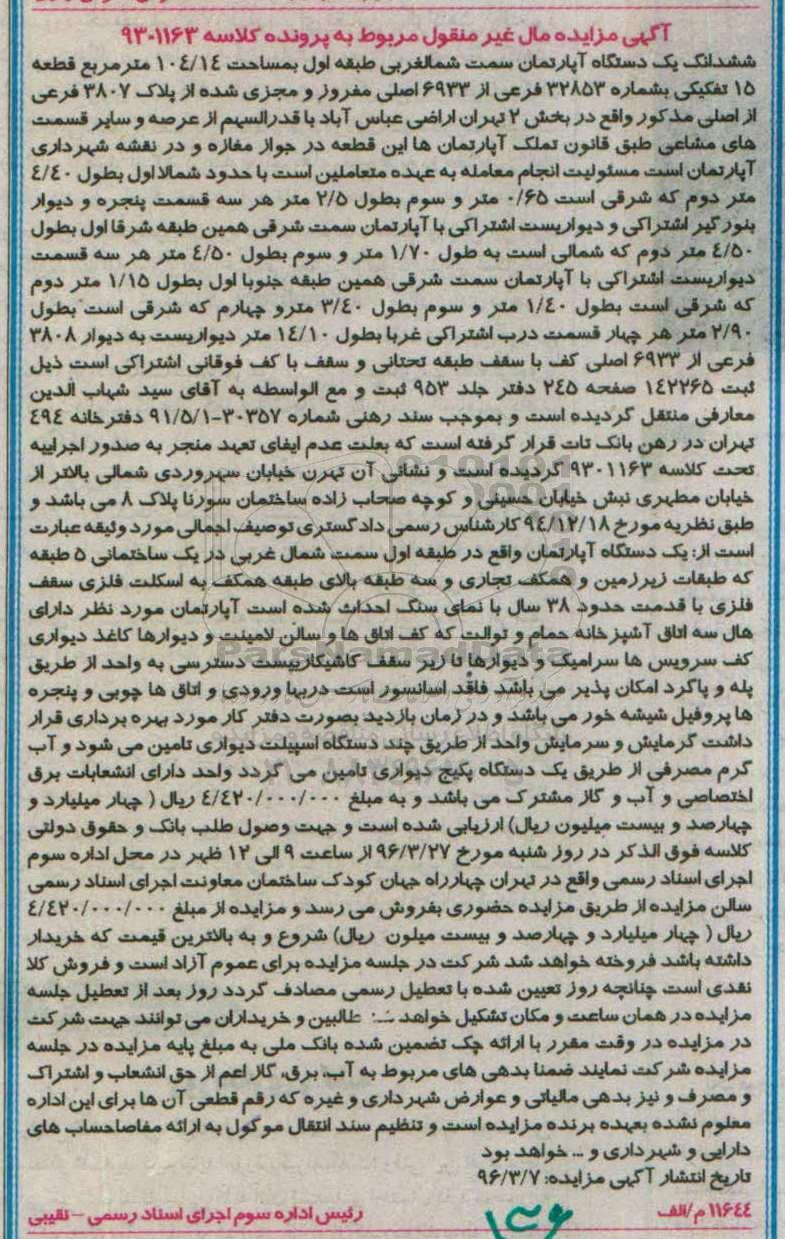 آگهی مزایده مال غیر منقول مربوط به پرونده کلاسه ۹۳۰۱۱۶۳
ششدانگ یک دستگاه آپارتمان سمت شمالغربی طبقه اول بمساحت ۱۰۴/۱۴ مترمربع قطعه
۱۵ تفکیکی بشماره ۳۲۸۵۳ فرعی از ۶۹۳۳ اصلی مفروز و مجزی شده از پلاک ۳۸۰۷ فرعی
از اصلی مذکور واقع در بخش ۲ تهران اراضی عباس آباد با قدرالسهم از عرصه و سایر قسمت
های مشاعی طبق قانون تملک آپارتمان ها این قطعه در جواز مغازه و در نقشه شهرداری
آپارتمان است مسئولیت انجام معامله به عهده متعاملین است با حدود شمالا اول بطول ۴/۴۰
متر دوم که شرقی است ۰/۶۵ متر و سوم بطول ۲/۵ متر هر سه قسمت پنجره و دیوار
بنورگیر اشتراکی و دیواریست اشتراکی با آپارتمان سمت شرقی همین طبقه شرقا اول بطول
۴/۵۰ متر دوم که شمالی است به طول ۱/۷۰ متر و سوم بطول ۴/۵۰ متر هر سه قسمت
دیواریست اشتراکی با آپارتمان سمت شرقی همین طبقه جنوبا اول بطول ۱/۱۵ متر دوم
که شرقی است بطول ۱/۴۰ متر و سوم بطول ۳/۴۰ مترو چهارم که شرقی است بطول
۲/۹۰ متر هر چهار قسمت درب اشتراکی غربا بطول ۱۴/۱۰ متر دیواریست به دیوار ۳۸۰۸
فرعی از ۶۹۳۳ اصلی کف با سقف طبقه تحتانی و سقف با کف فوقانی اشتراکی است ذیل
ثبت ۱۴۲۲۶۵ صفحه ۲۴۵ دفتر جلد ۹۵۳ ثبت و مع الواسطه به آقای سید شهاب الدین
معارفی منتقل گردیده است و بموجب سند رهنی شماره ۳۰۳۵۷-۹۱/۵/۱ دفترخانه ۴۹۴
تهران در رهن بانک تات قرار گرفته است که بعلت عدم ایفای تعهد منجر به صدور اجراییه
تحت کلاسه ۹۳۰۱۱۶۳ گردیده است و نشانی آن تهرن خیابان سهروردی شمالی بالاتر از
خیابان مطهری نبش خیابان حسینی و کوچه صحاب زاده ساختمان سورنا پلاک ۸ می باشد و
طبق نظریه مورخ ۹۴/۱۲/۱۸ کارشناس رسمی دادگستری توصیف اجمالی مورد وثیقه عبارت
است از: یک دستگاه آپارتمان واقع در طبقه اول سمت شمال غربی در یک ساختمانی ۵ طبقه
که طبقات زیرزمین و همکف تجاری و سه طبقه بالای طبقه همکف به اسکلت فلزی سقف
فلزی با قدمت حدود ۳۸ سال با نمای سنگ احداث شده است آپارتمان مورد نظر دارای
هال سه اتاق آشپزخانه حمام و توالت که کف اتاق ها و سالن لامینت و دیوارها کاغذ دیواری
کف سرویس ها سرامیک و دیوارها تا زیر سقف کاشیکاریست دسترسی به واحد از طریق
پله و پاگرد امکان پذیر می باشد فاقد اسانسور است دربها ورودی و اتاق ها چوبی و پنجره
ها پروفیل شیشه خور می باشد و در زمان بازدید بصورت دفتر کار مورد بهره برداری قرار
داشت گرمایش و سرمایش واحد از طریق چند دستگاه اسپیلت دیواری تامین می شود و آب
گرم مصرفی از طریق یک دستگاه پکیج دیواری تامین می گردد واحد دارای انشعابات برق
اختصاصی و آب و گاز مشترک می باشد و به مبلغ ۴/۴۲۰/۰۰۰/۰۰۰ ریال ( چهار میلیارد و
چهارصد و بیست میلیون ریال) ارزیابی شده است و جهت وصول طلب بانک و حقوق دولتی
کلاسه فوق الذکر در روز شنبه مورخ ۹۶/۳/۲۷ از ساعت ۹ الی ۱۲ ظهر در محل اداره سوم
اجرای اسناد رسمی واقع در تهران چهارراه جهان کودک ساختمان معاونت اجرای اسناد رسمی
سالن مزایده از طریق مزایده حضوری بفروش می رسد و مزایده از مبلغ ۴/۴۲۰/۰۰۰/۰۰۰
ریال ( چهار میلیارد و چهارصد و بیست میلون ریال) شروع و به بالاترین قیمت که خریدار
داشته باشد فروخته خواهد شد شرکت در جلسه مزایده برای عموم آزاد است و فروش کلا
نقدی است چنانچه روز تعیین شده با تعطیل رسمی مصادف گردد روز بعد از تعطیل جلسه
مزایده در همان ساعت و مکان تشکیل خواهد طالبین و خریداران می توانند جهت شرکت
در مزایده در وقت مقرر با ارائه چک تضمین شده بانک ملی به مبلغ پایه مزایده در جلسه
مزایده شرکت نمایند ضمنا بدهی های مربوط به آب، برق، گاز اعم از حق انشعاب و اشتراک
و مصرف و نیز بدهی مالیاتی و عوارض شهرداری و غیره که رقم قطعی آن ها برای این اداره
معلوم نشده بعهده برنده مزایده است و تنظیم سند انتقال موکول به ارائه مفاصاحساب های
دارایی و شهرداری و ... خواهد بود
تاریخ انتشار آگهی مزایده: ۹۶/۳/۷
۱۱۶۴۴ م/الف
رئیس اداره سوم اجرای اسناد رسمی – نقیبی
ParsNamadData